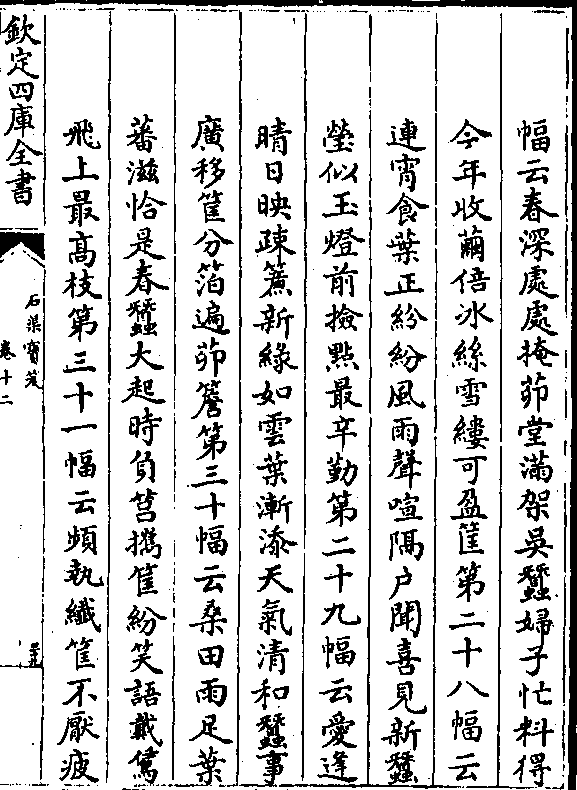 幅云春深處處掩茆堂滿架吳蠶婦子忙料得
今年收繭倍冰絲雪縷可盈筐第二十八幅云
連宵食葉正紛紛風雨聲喧隔户聞喜見新蠶
瑩似玉燈前撿㸃最辛勤第二十九幅云愛逢
晴日映疎簾新緑如雲葉漸添天氣清和蠶事
廣移筐分箔遍茆簷第三十幅云桑田雨足葉
蕃滋恰是春蠶大起時負筥攜筐紛笑語戴鵀
飛上最髙枝第三十一幅云頻執纖筐不厭疲
欽定四庫全書
石渠寶笈
卷十二